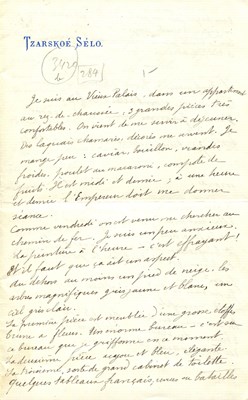 TZARSKOÉ SÉLO.
Je suis au Vieux Palais, dans un appartement
au rez-de chaussée, 3 grandes pièces très
confortables. On vient de me servir à déjeuner.
Des laquais chamarrés, décorés me servent. Je
mange peu : caviar, bouillon, viandes
froides, poulet au macaroni, compote de
fruits. Il est midi et demie, à une heure
et demie l'Empereur doit me donner
séance.
Comme vendredi on est venu me chercher au
chemin de fer. Je suis un peu anxieux,
la peinture à l'heure - c'est effrayant!
Et il faut que ça ait un aspect.
Au dehors au moins un pied de neige, les
arbres magnifiques gris, jaune et blanc, un
ciel gris clair.
La première pièce est meublée d'une grosse étoffe
brune à fleurs. Un énorme bureau - c'est sur
ce bureau que je griffonne en ce moment.
La deuxième pièce acajou et bleu, élégante
La troisième, sorte de grand cabinet de toilette.
Quelques tableaux français, vues ou batailles